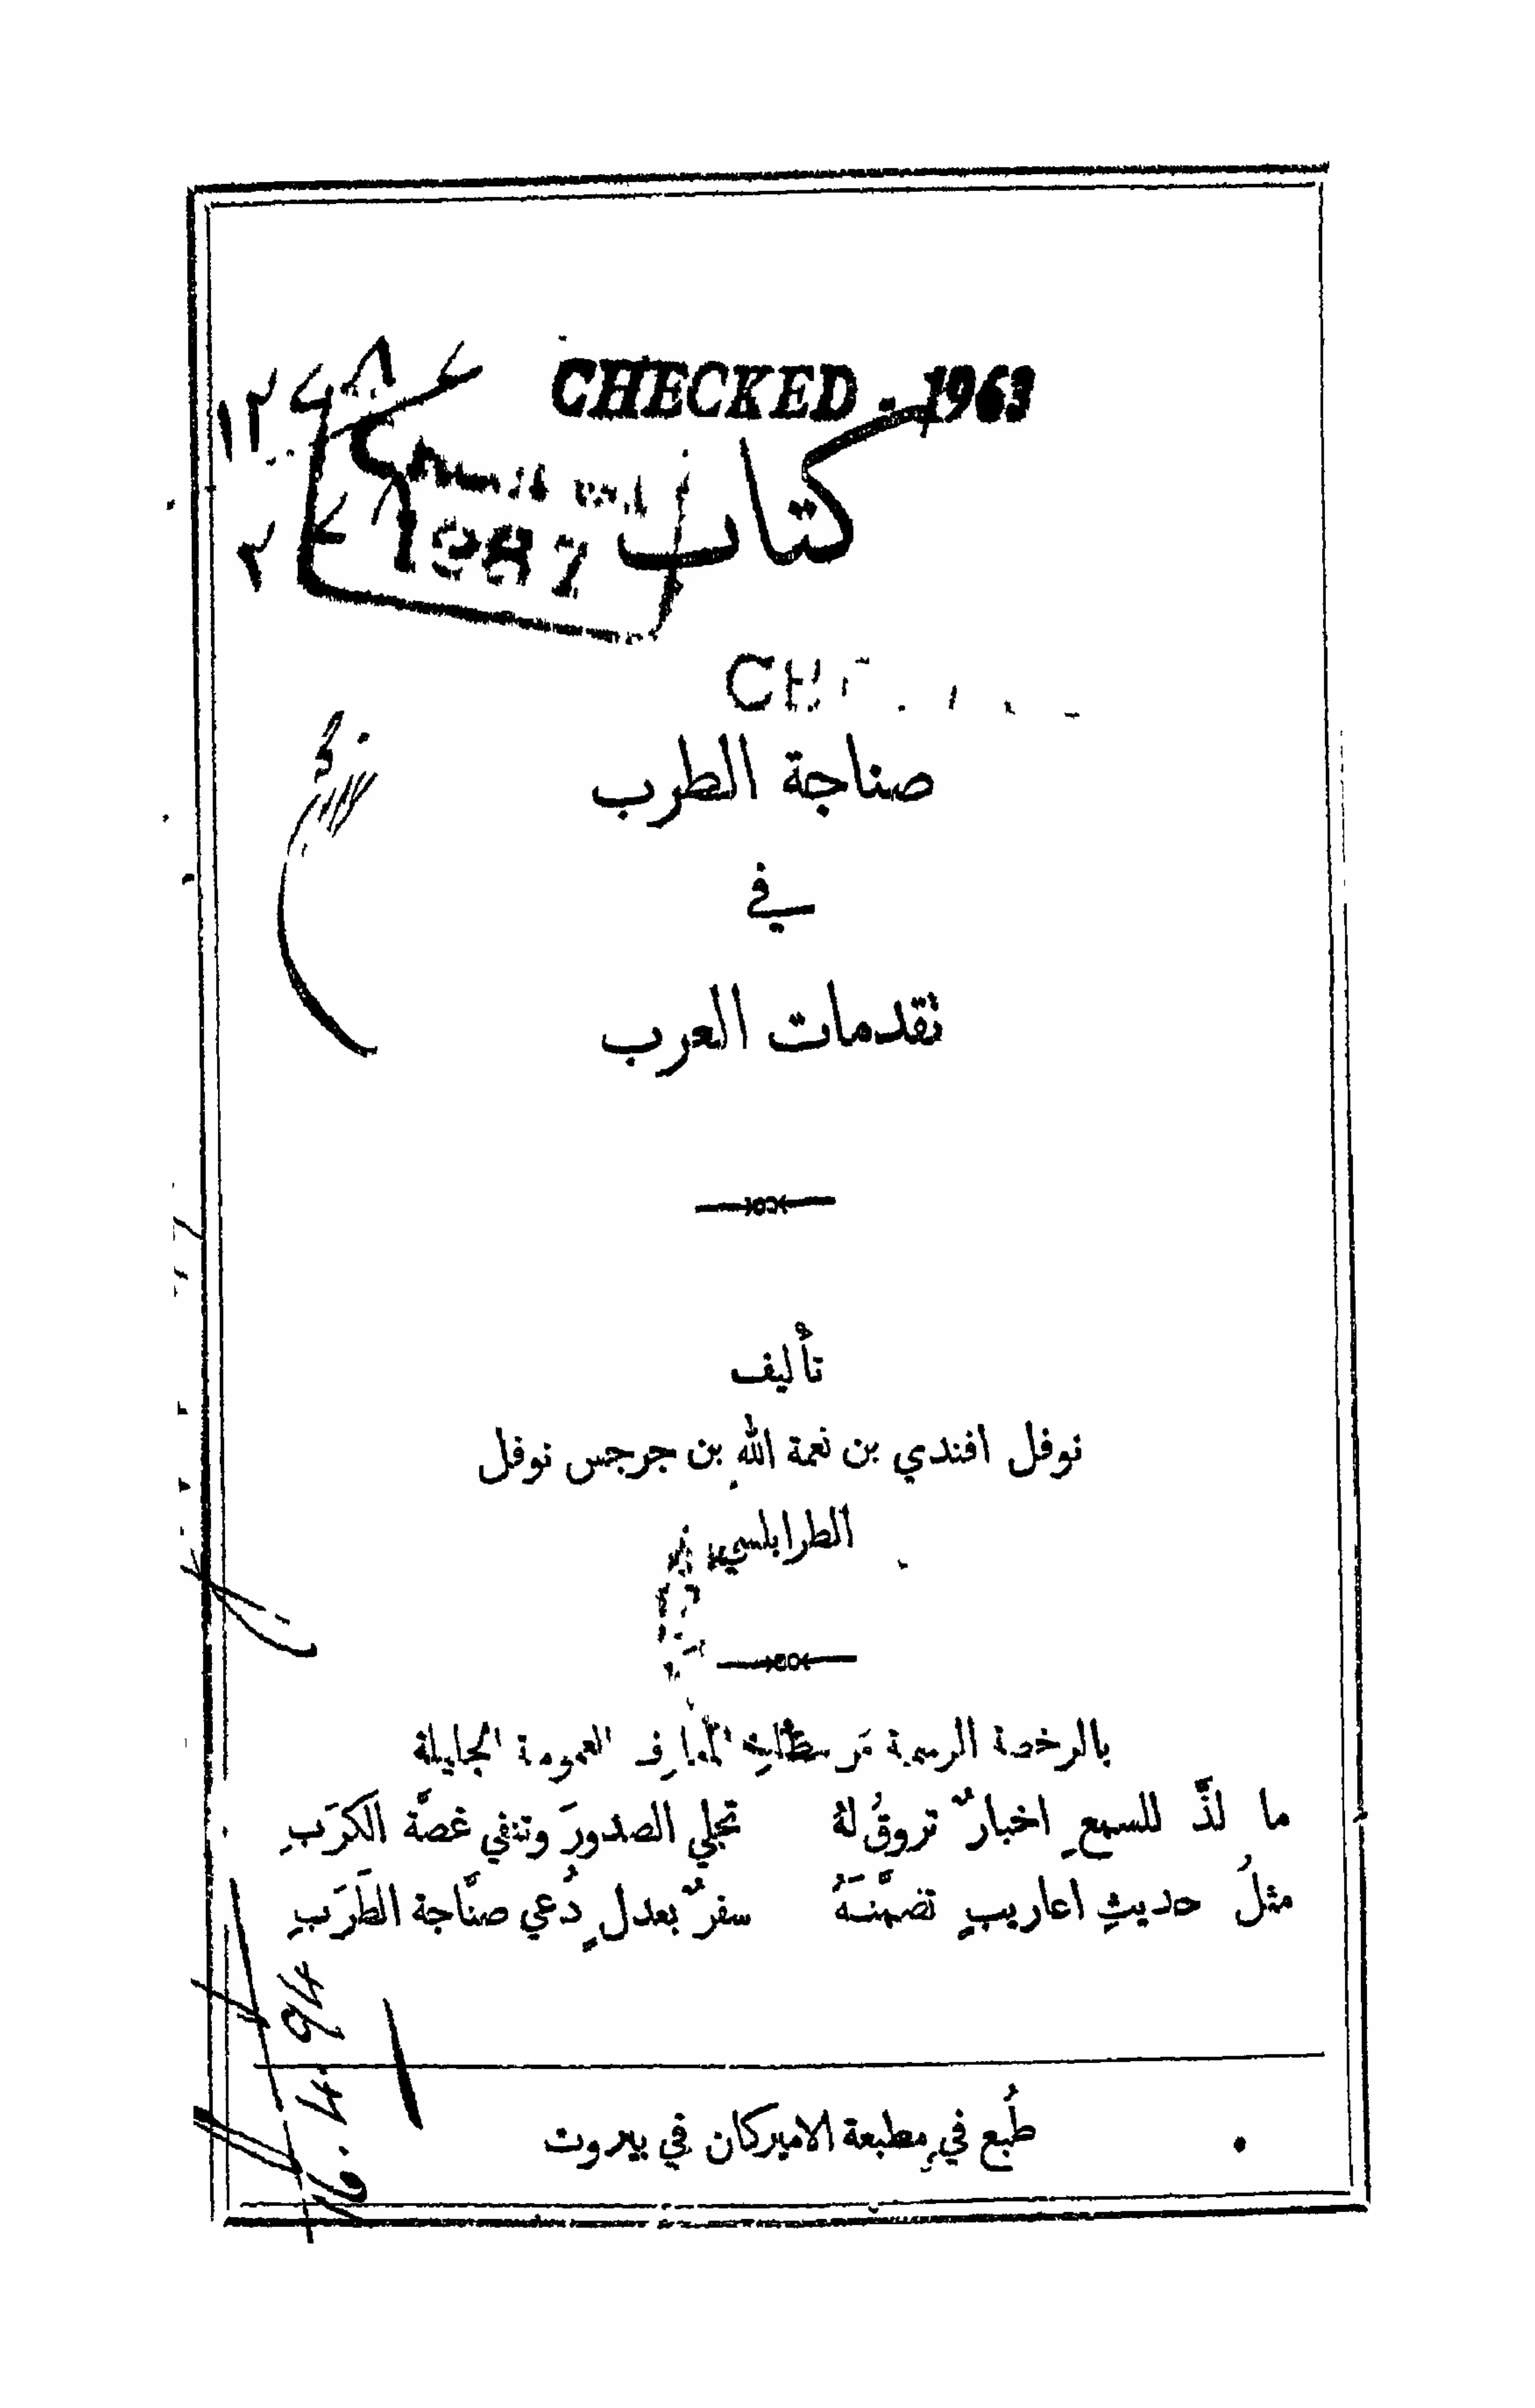 CHECKED - 1963
كتاب
1987
صناجة الطرب
في
تقدمات العرب
تأليف
نوفل افندي بن نعمة الله بن جرجس نوفل
الطرابلسي
بالرخصة الرسمية من المعارف العمومية الجليلة
ما لذَّ للسمعِ اخبارٌ تروقُ لهُ تجلي الصدورَ وتنفي غصَّة الكرَبِ
مثلُ حديثِ اعاريبٍ تضمَّنَهُ سفرٌ بعدلٍ دُعي صنَّاجة الطَّرَبِ
16.4.94
طُبع في مطبعة الاميركان في بيروت